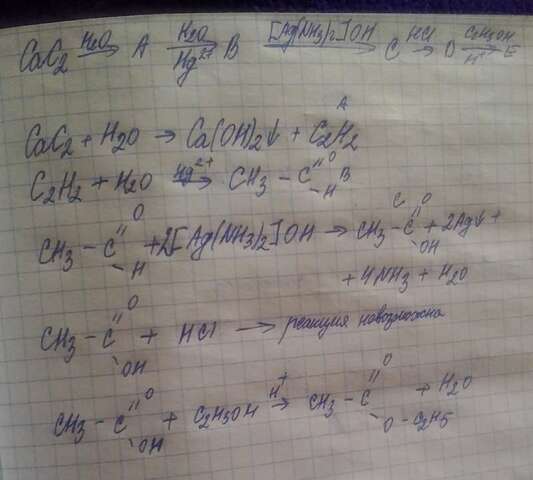 CaC2 H2O→ A H2O→ Hg2+ B [Ag(NH3)2]OH→ C HCl→ D C2H5OH→ H+ E
A
CaC2 + H2O → Ca(OH)2↓ + C2H2
C2H2 + H2O Hg2+→ CH3 – C =O –H B
CH3 – C =O –H + 2[Ag(NH3)2]OH → C CH3 – C =O –OH + 2Ag↓ +
+ 4NH3 + H2O
CH3 – C =O –OH + HCl → реакция невозможна
CH3 – C =O –OH + C2H5OH H+→ CH3 – C =O O – C2H5 + H2O